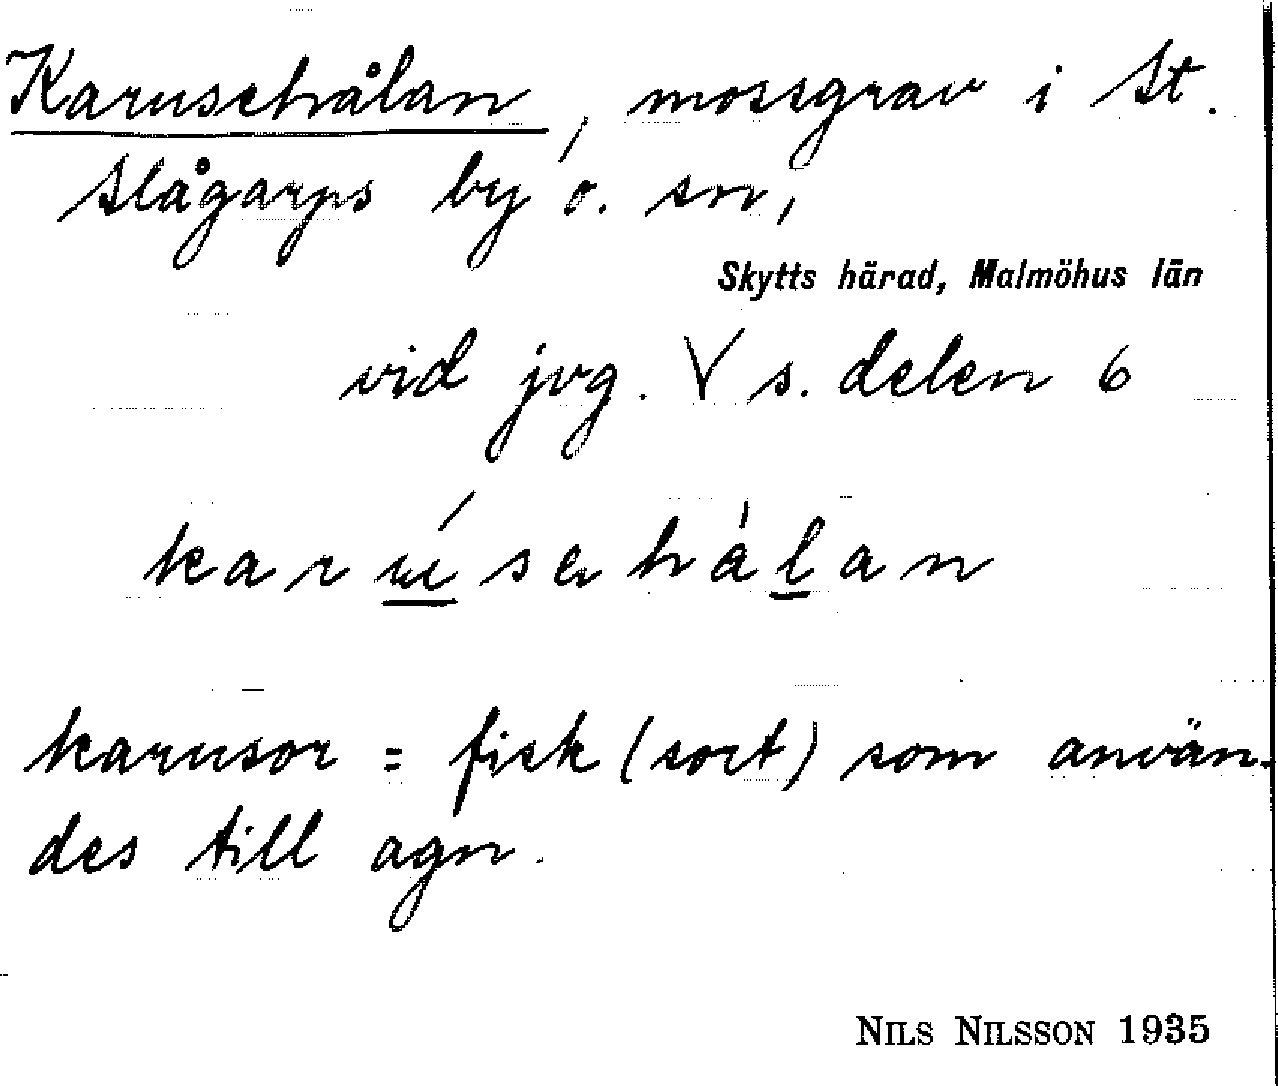 Karusehålan, mossgrav i St.
Slågarps by o. sn,
Skytts härad, Malmöhus län
vid jvg. V s. delen 6
karúsahålan
karusor = fisk (sort) som använ-
des till agn.
NILS NILSSON 1935